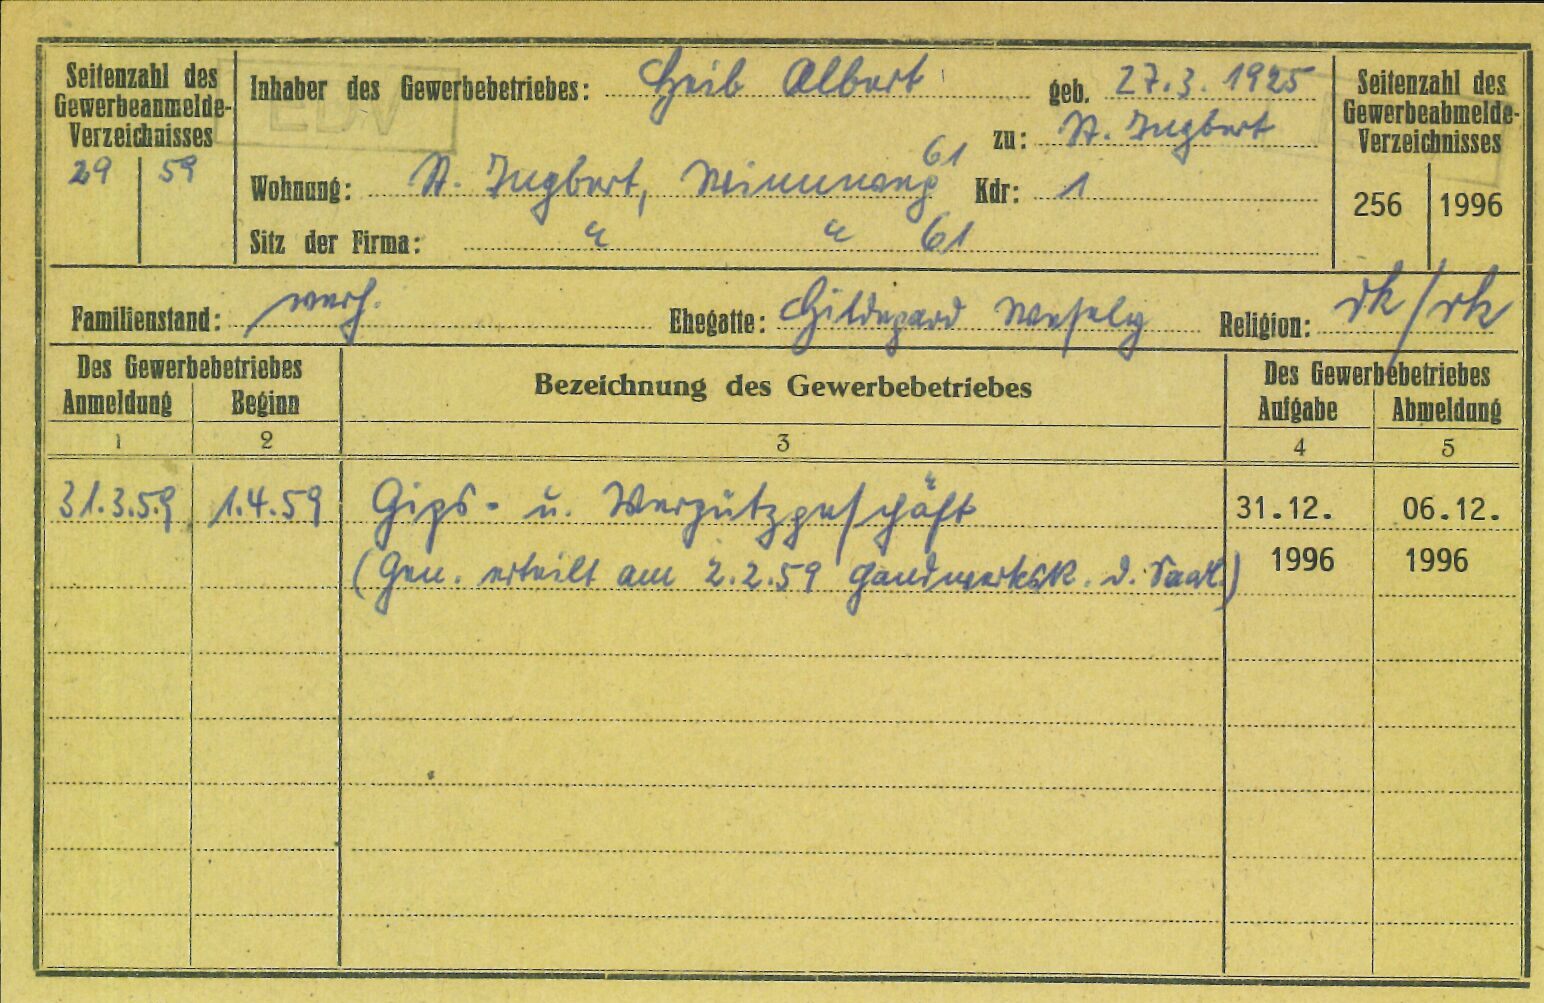 Seitenzahl des Gewerbeanmelde-Verzeichnisses
29 | 59
EDV
Inhaber des Gewerbebetriebes: Heib Albert
geb. 27.3.1925
zu: St. Ingbert
Wohnung: St. Ingbert, 61
Kdr: 1
Sitz der Firma: " " 61
Seitenzahl des Gewerbeabmelde-Verzeichnisses
256 | 1996
Familienstand: verh.
Ehegatte: Hildegard Wesely
Religion: rk/rk
Des Gewerbebetriebes
Anmeldung Beginn
Bezeichnung des Gewerbebetriebes
Des Gewerbebetriebes
Aufgabe Abmeldung
1 2 3 4 5
31.3.59 1.4.59 Gips- u. Verputzgeschäft 31.12. 06.12.
(Gen. erteilt am 2.2.59 Handwerksk. d. Saarl.) 1996 1996